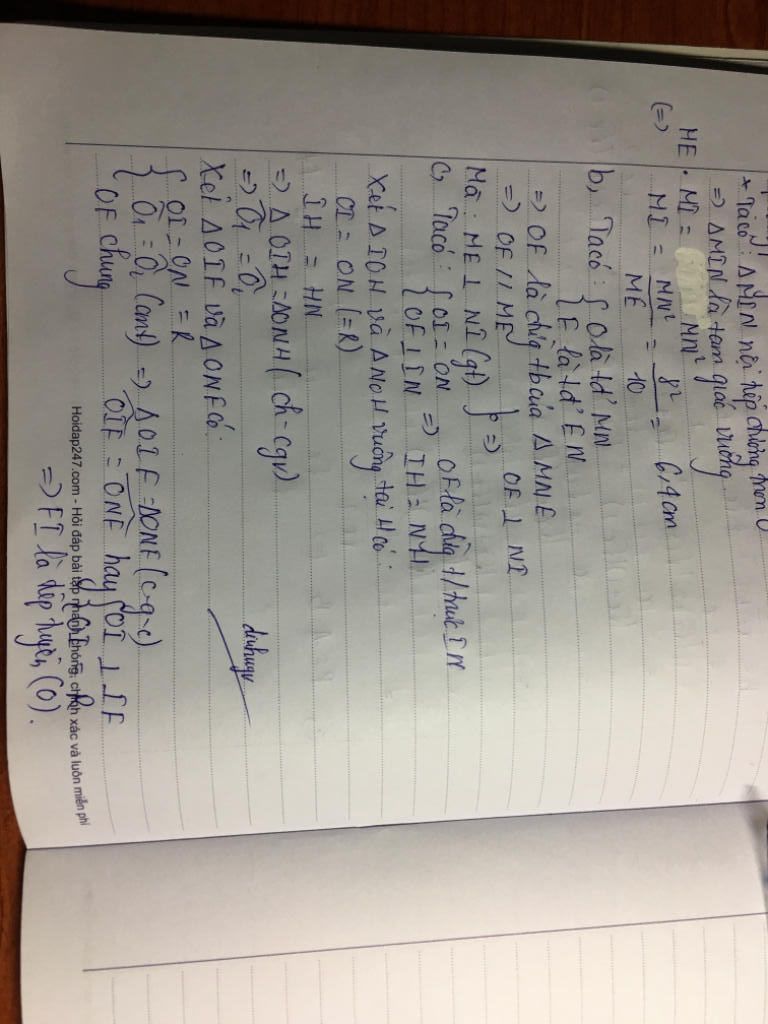 * Ta có: ΔMIN nội tiếp đường tròn O
=> ΔMIN là tam giác vuông
ME . MI = MN²
(=> MI = MN²/ME = 8²/10 = 6,4cm
b, Ta có: { O là tđ' MN
{ F là tđ' EN
=> OF là đường tb của Δ MNE
=> OF // ME
Mà: ME ⊥ NI (gt) } => OF ⊥ NI
c, Ta có: { OI = ON
{ OF ⊥ IN => OF là đường t/trực IN
=> IH = NH
Xét Δ IOH và Δ NOH vuông tại H có:
OI = ON (=R)
IH = HN
=> Δ OIH = ΔONH (ch - cgv)
=> Ô₁ = Ô₂
Xét Δ OIF và Δ ONF có:
{ OI = ON = R
{ Ô₁ = Ô₂ (cmt) => Δ OIF = ΔONF (c-g-c)
OF chung
OIF = ONF hay { OI ⊥ IF
{ OI = R
=> FI là tiếp tuyến (O).
dinhugv
Hoidap247.com - Hỏi đáp bài tập nhanh chóng, chính xác và luôn miễn phí